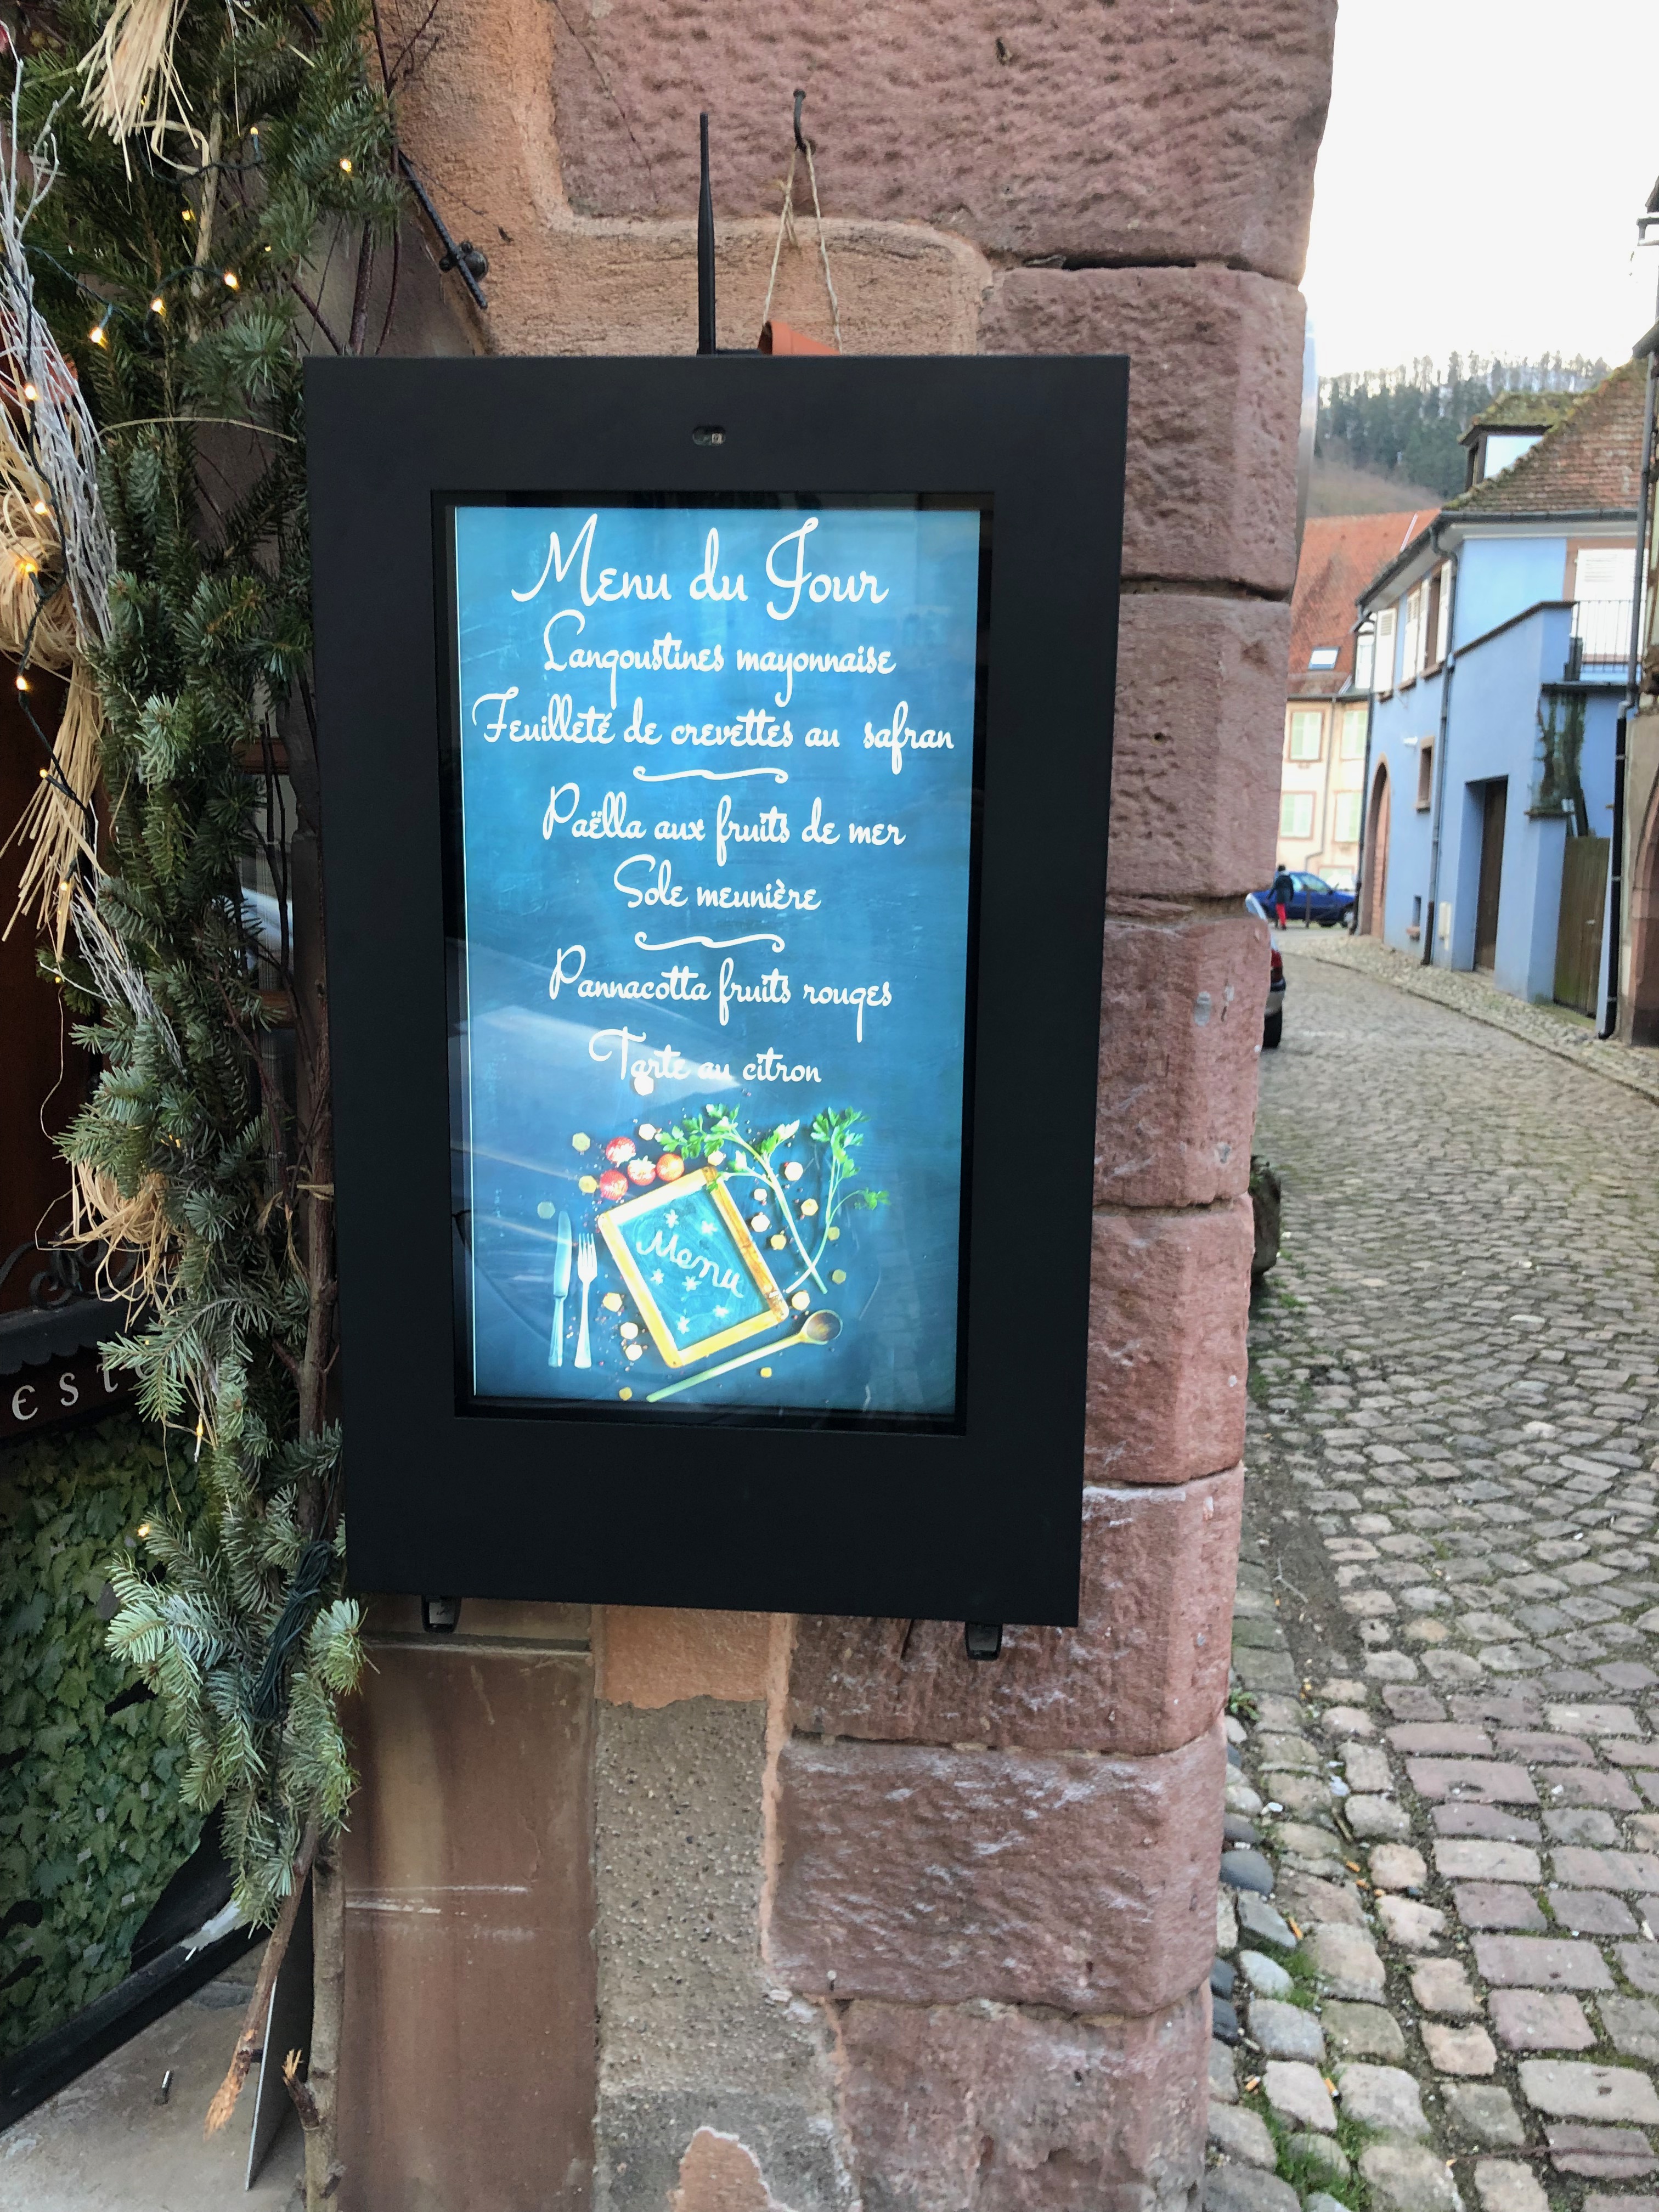 Menu du Jour
Langoustines mayonnaise
Feuilleté de crevettes au safran
Paëlla aux fruits de mer
Sole meunière
Pannacotta fruits rouges
Tarte au citron
Menu